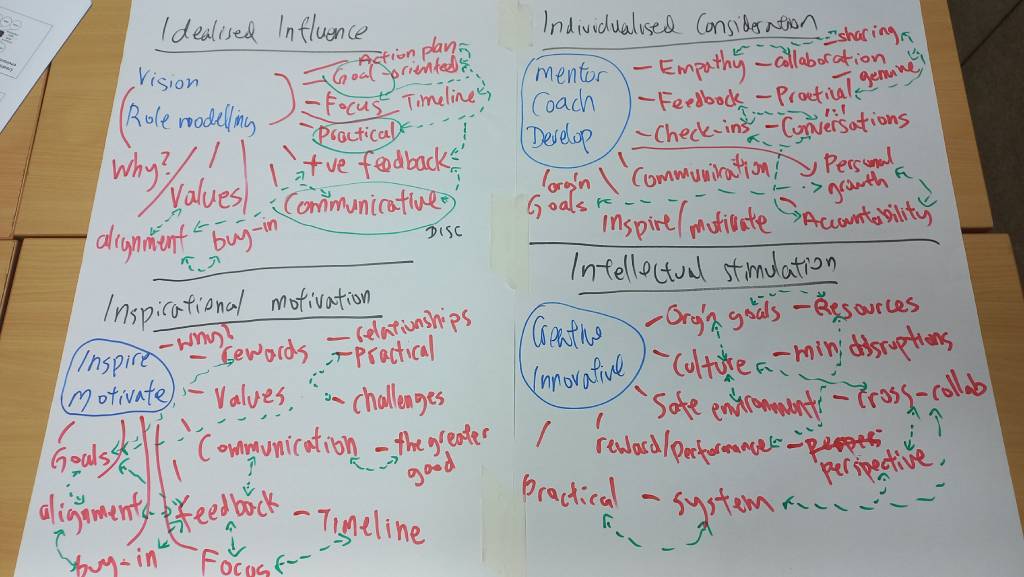 Idealised Influence
Vision
Role modelling
Action plan
Goal oriented
- Focus - Timeline
- Practical
+ve feedback
Communicative
DISC
Why?
Values
alignment
buy-in
Individualised Consideration
Mentor
Coach
Develop
- Empathy - collaboration
- sharing
- Feedback - Practical
genuine
- Check-ins - Conversations
Communication
Personal
growth
Accountability
Org'n
Goals
Inspire/motivate
Inspirational motivation
Inspire
Motivate
- why?
- rewards
- relationships
- practical
- Values
- challenges
Goals
Communication - the greater
good
alignment
feedback - Timeline
buy-in
Focus
Intellectual stimulation
Creative
Innovative
- Org'n goals - Resources
- Culture - min disruptions
Safe environment - cross-collab
reward/performance -
perspective
Practical - system